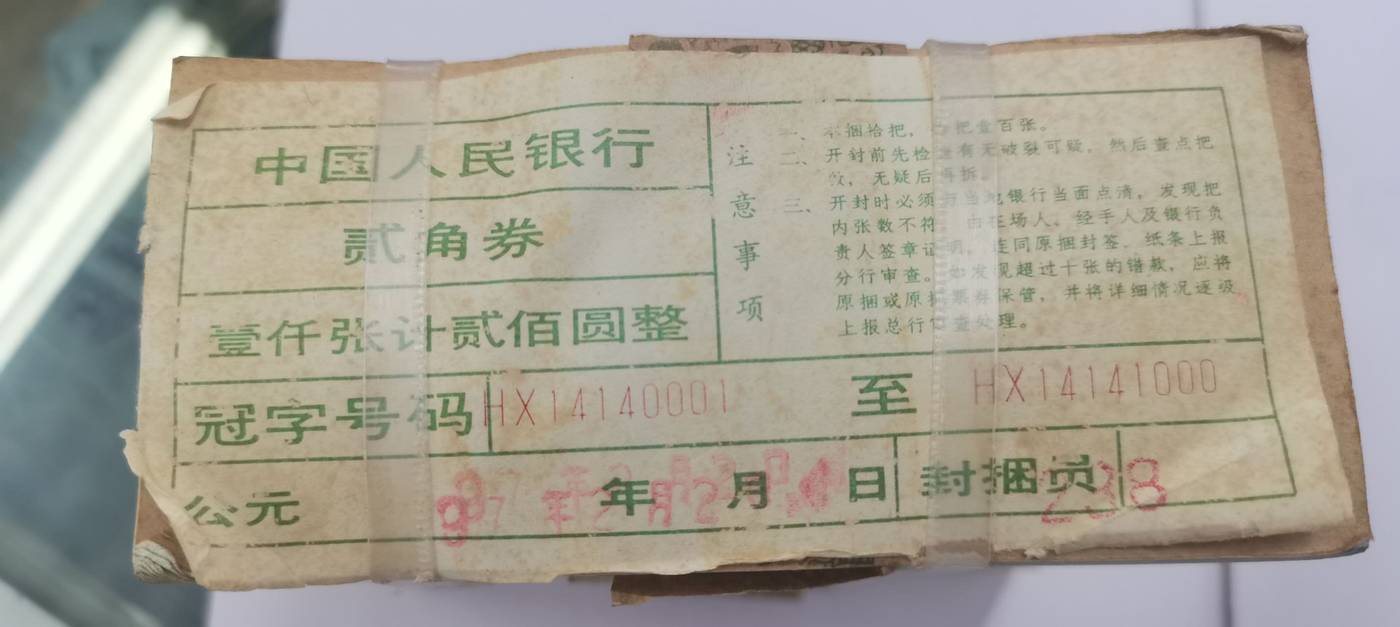 中国人民银行
贰角券
壹仟张计贰佰圆整
注意事项
一、本捆拾把，每把壹百张。
二、开封前先检查有无破裂可疑，然后查点把
数，无疑后再拆。
三、开封时必须在当地银行当面点清，发现把
内张数不符，由在场人、经手人及银行负
责人签章证明，连同原捆封签、纸条上报
分行审查。如发现超过十张的错款，应将
原捆或原把票券保管，并将详细情况逐级
上报总行审查处理。
冠字号码 HX14140001 至 HX14141000
公元 年 月 日 封捆员 238